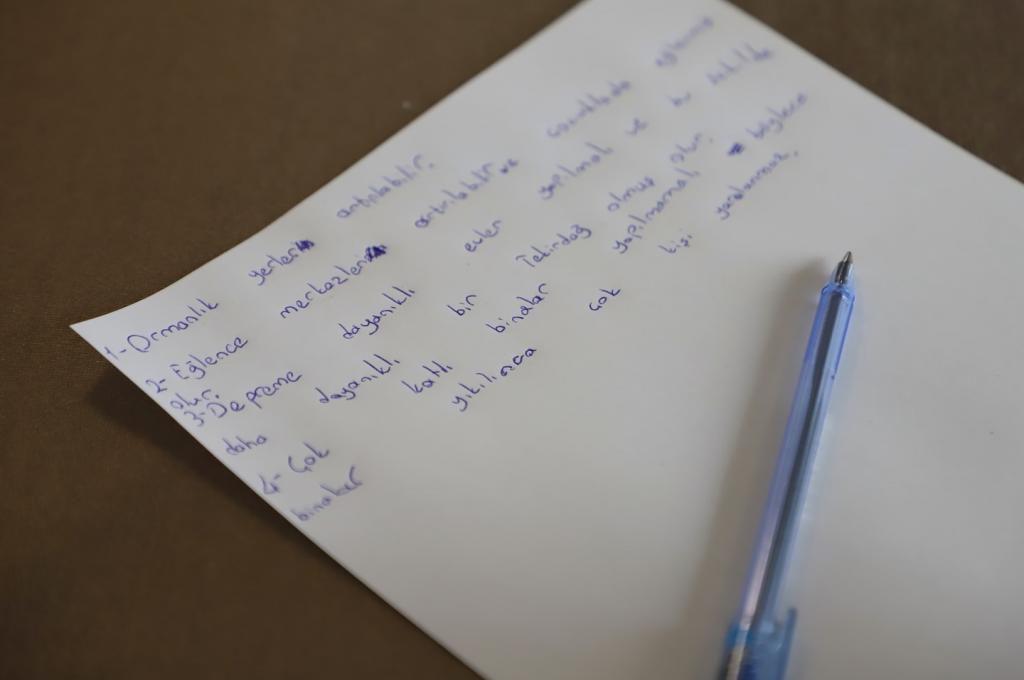 1- Ormanlık yerleri artırılabilir.
2- Eğlence merkezleri artırılabilir ve çocuklarda eğlenmiş
olur.
3- Depreme dayanıklı evler yapılmalı ve bu şekilde
daha dayanıklı bir Tekirdağ olmuş olur.
4- Çok katlı binalar yapılmamalı böylece
binalar yıkılınca çok kişi yaralanmaz.